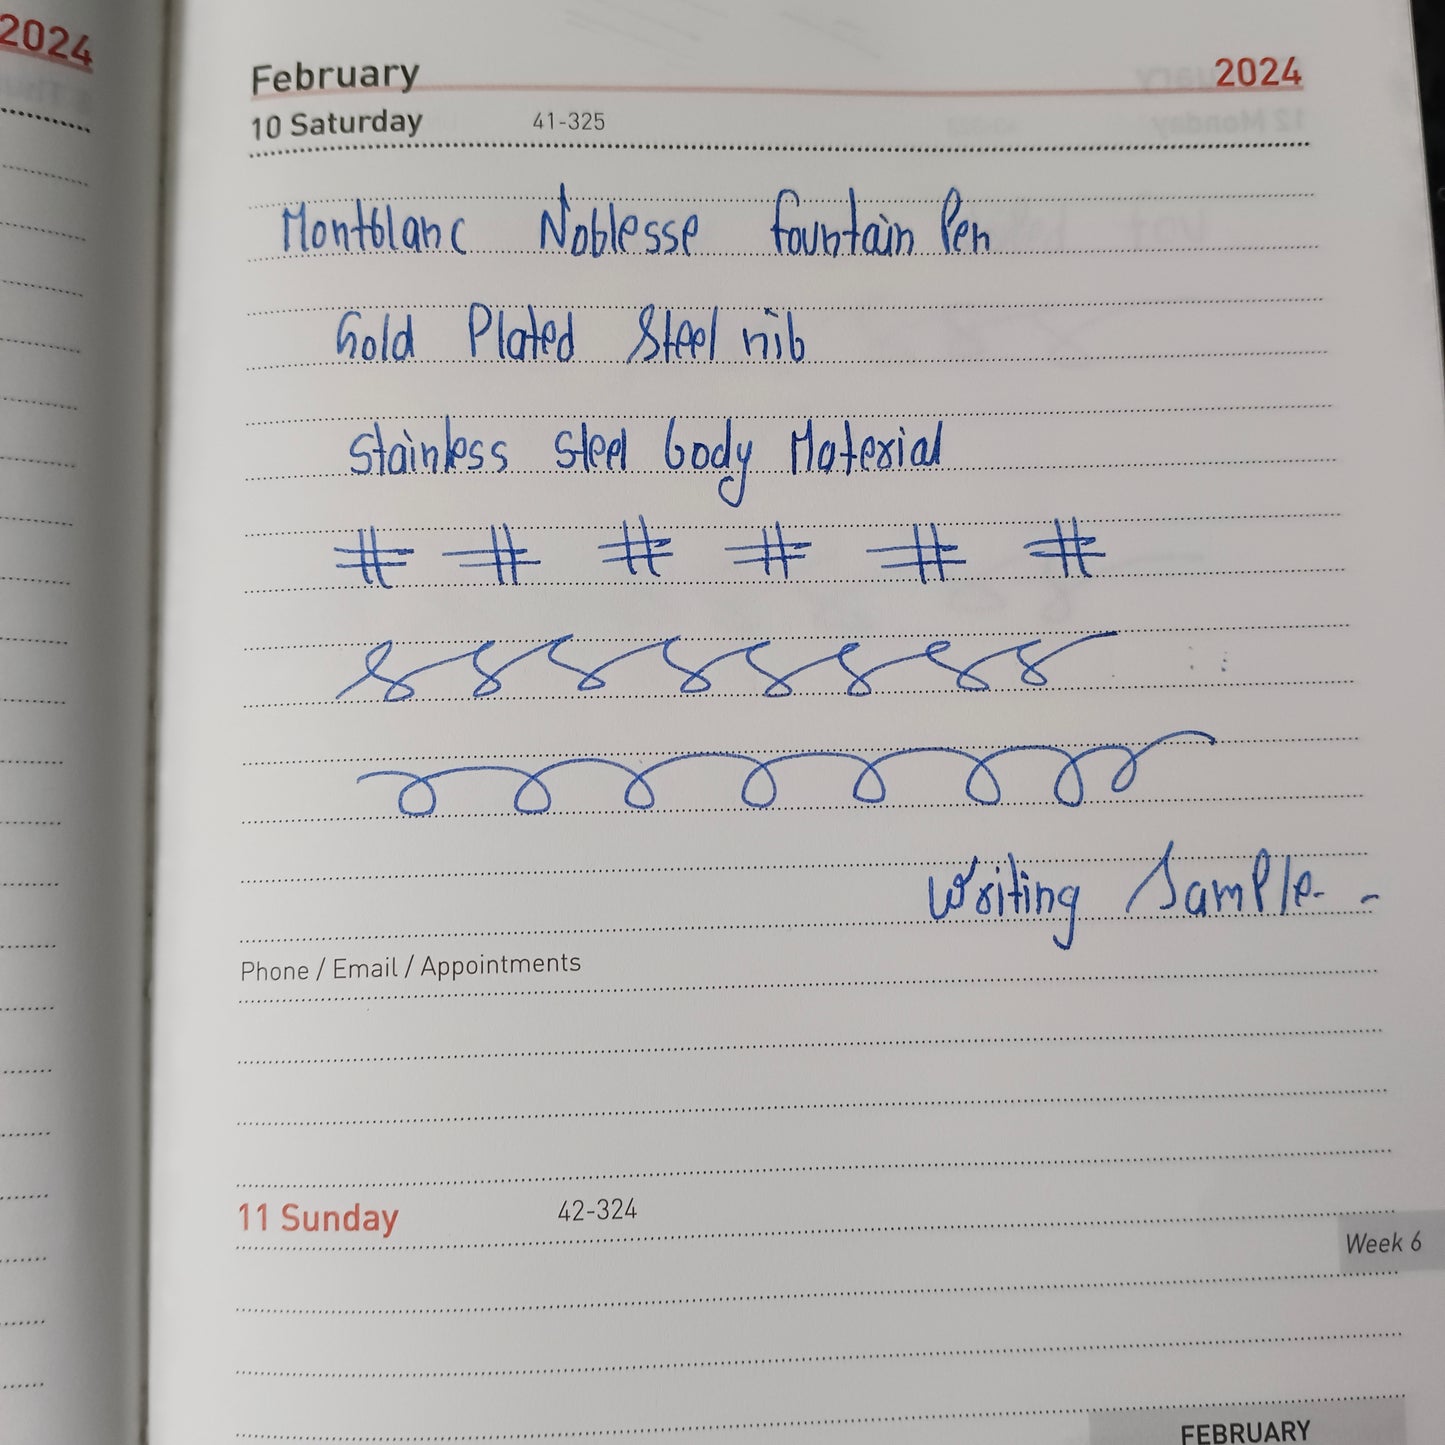 2024
February 2024
10 Saturday 41-325
Montblanc Noblesse fountain Pen
Gold Plated Steel nib
Stainless steel body Material
# # # # # #
Writing Sample- -
Phone / Email / Appointments
11 Sunday 42-324
Week 6
FEBRUARY